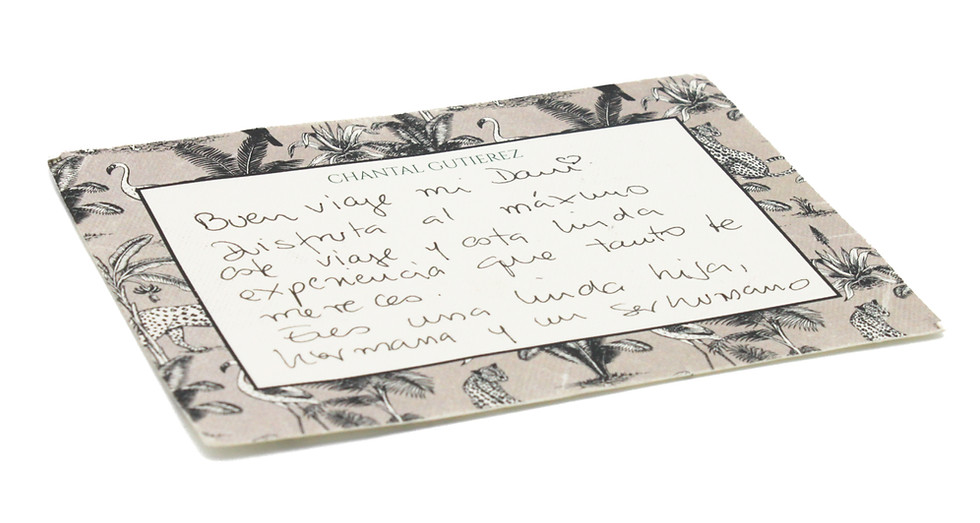 CHANTAL GUTIEREZ
Buen viaje mi Dani ♡.
Disfruta al máximo
este viaje y esta linda
experiencia que tanto te
mereces.
Eres una linda hija,
hermana y un ser humano